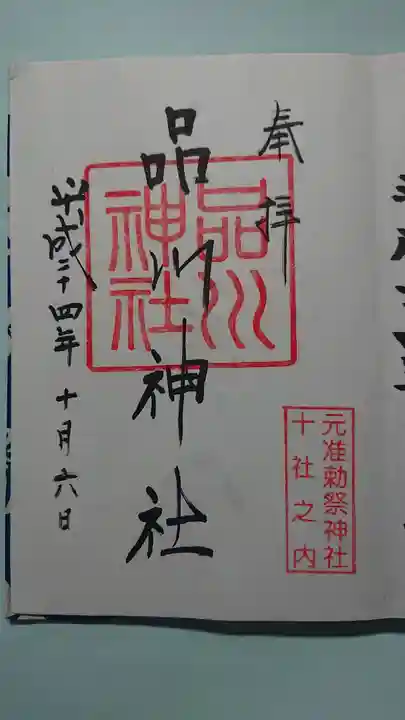 奉拝
品川神社
品川
神社
平成二十四年十月六日
元准勅祭神社
十社之内